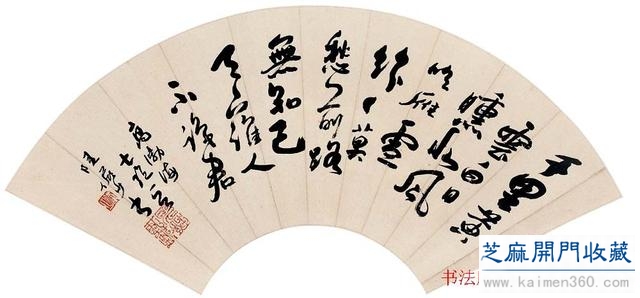 千里黄
雲白日
曛北風
吹雁雪
紛〻莫
愁前路
無知己
天下誰人
不識君
高渤海
七絕
陸儼少
芝麻開門收藏
www.kaimen360.com
书法